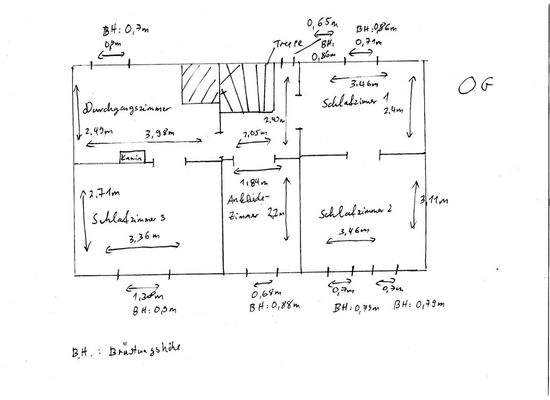 BH: 0,7m
0,65m
BH: 0,86m
Treppe
BH:
0,86m
0,71m
OG
3,46m
Durchgangszimmer
Schlafzimmer 1
2,4m
2,49m
3,98m
2,05m
2,49m
Kamin
1,84m
2,71m
Ankleide-
Zimmer
2,7m
3,11m
Schlafzimmer 3
Schlafzimmer 2
3,36m
3,46m
1,38m
0,68m
0,7m
0,7m
BH: 0,9m
BH: 0,88m
BH: 0,79m
BH: 0,79m
B.H.: Brüstungshöhe